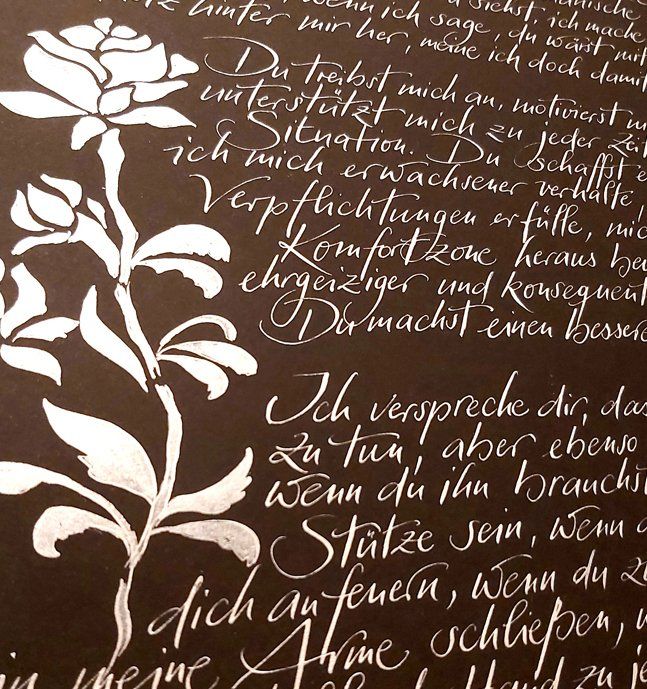 siehst, ich mache
hinter mir her, wenn ich sage, du wärst mit
meine ich doch damit
Du treibst mich an, motivierst
unterstützt mich zu jeder Zeit
Situation. Du schaffst
ich mich erwachsener verhalte,
Verpflichtungen erfülle, mic
Komfortzone heraus
ehrgeiziger und konsequent
Du machst einen bessere
Ich verspreche dir, das
zu tun, aber ebenso
wenn du ihn brauchst
Stütze sein, wenn
dich anfeuern, wenn du zu
in meine Arme schließen,
Hand zu je